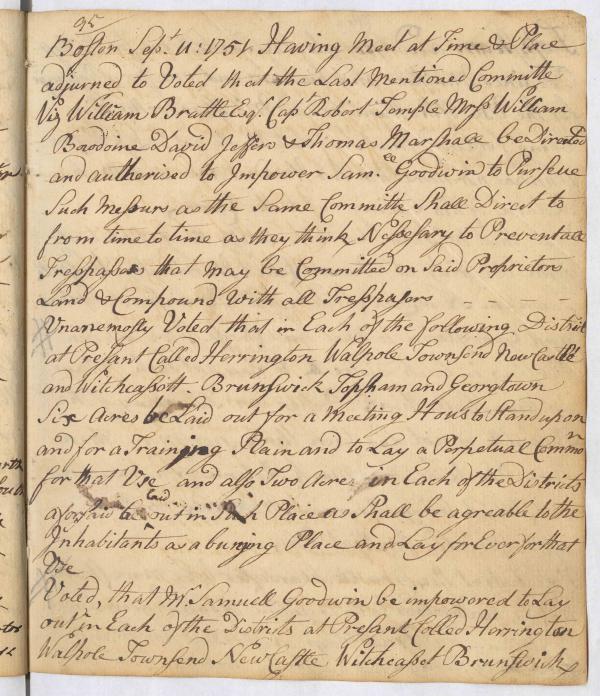 95
Boston Sept. 11: 1751 Having Meet at Time & Place
adjurned to Voted that the Last Mentioned Committe
Viz William Brattle Esqr. Capt Robert Temple Mrss William
Bowdoine David Jeffers & Thomas Marshall be Directed
and authorised to Impower Sam.ll Goodwin to Purseue
Such Mesurs as the Same Committe Shall Direct to
from time to time as they think Nessesary to Prevent all
Tresspasses that may be Committed on Said Proprietors
Land & Compound with all Tresspasors
Unanemosly Voted that in Each of the following District
at Present Called Herrington Walpole Townsend New Castle
and Witchcassett Brunswick Topsham and Georgtown
Six Acres be Laid out for a Meeting Hous to Stand upon
and for a Training Plain and to Lay a Perpetual Common
for that Use and also Two Acres in Each of the Districts
aforsaid be Laid out in Such Place as Shall be agreable to the
Inhabitants as a burying Place and Lay for Ever for that
Use
Voted, that Mr Samuell Goodwin be impowered to Lay
out in Each of the Districts at Presant Colled Herrington
Walpole Townsend New Castle Witchcasset Brunswick